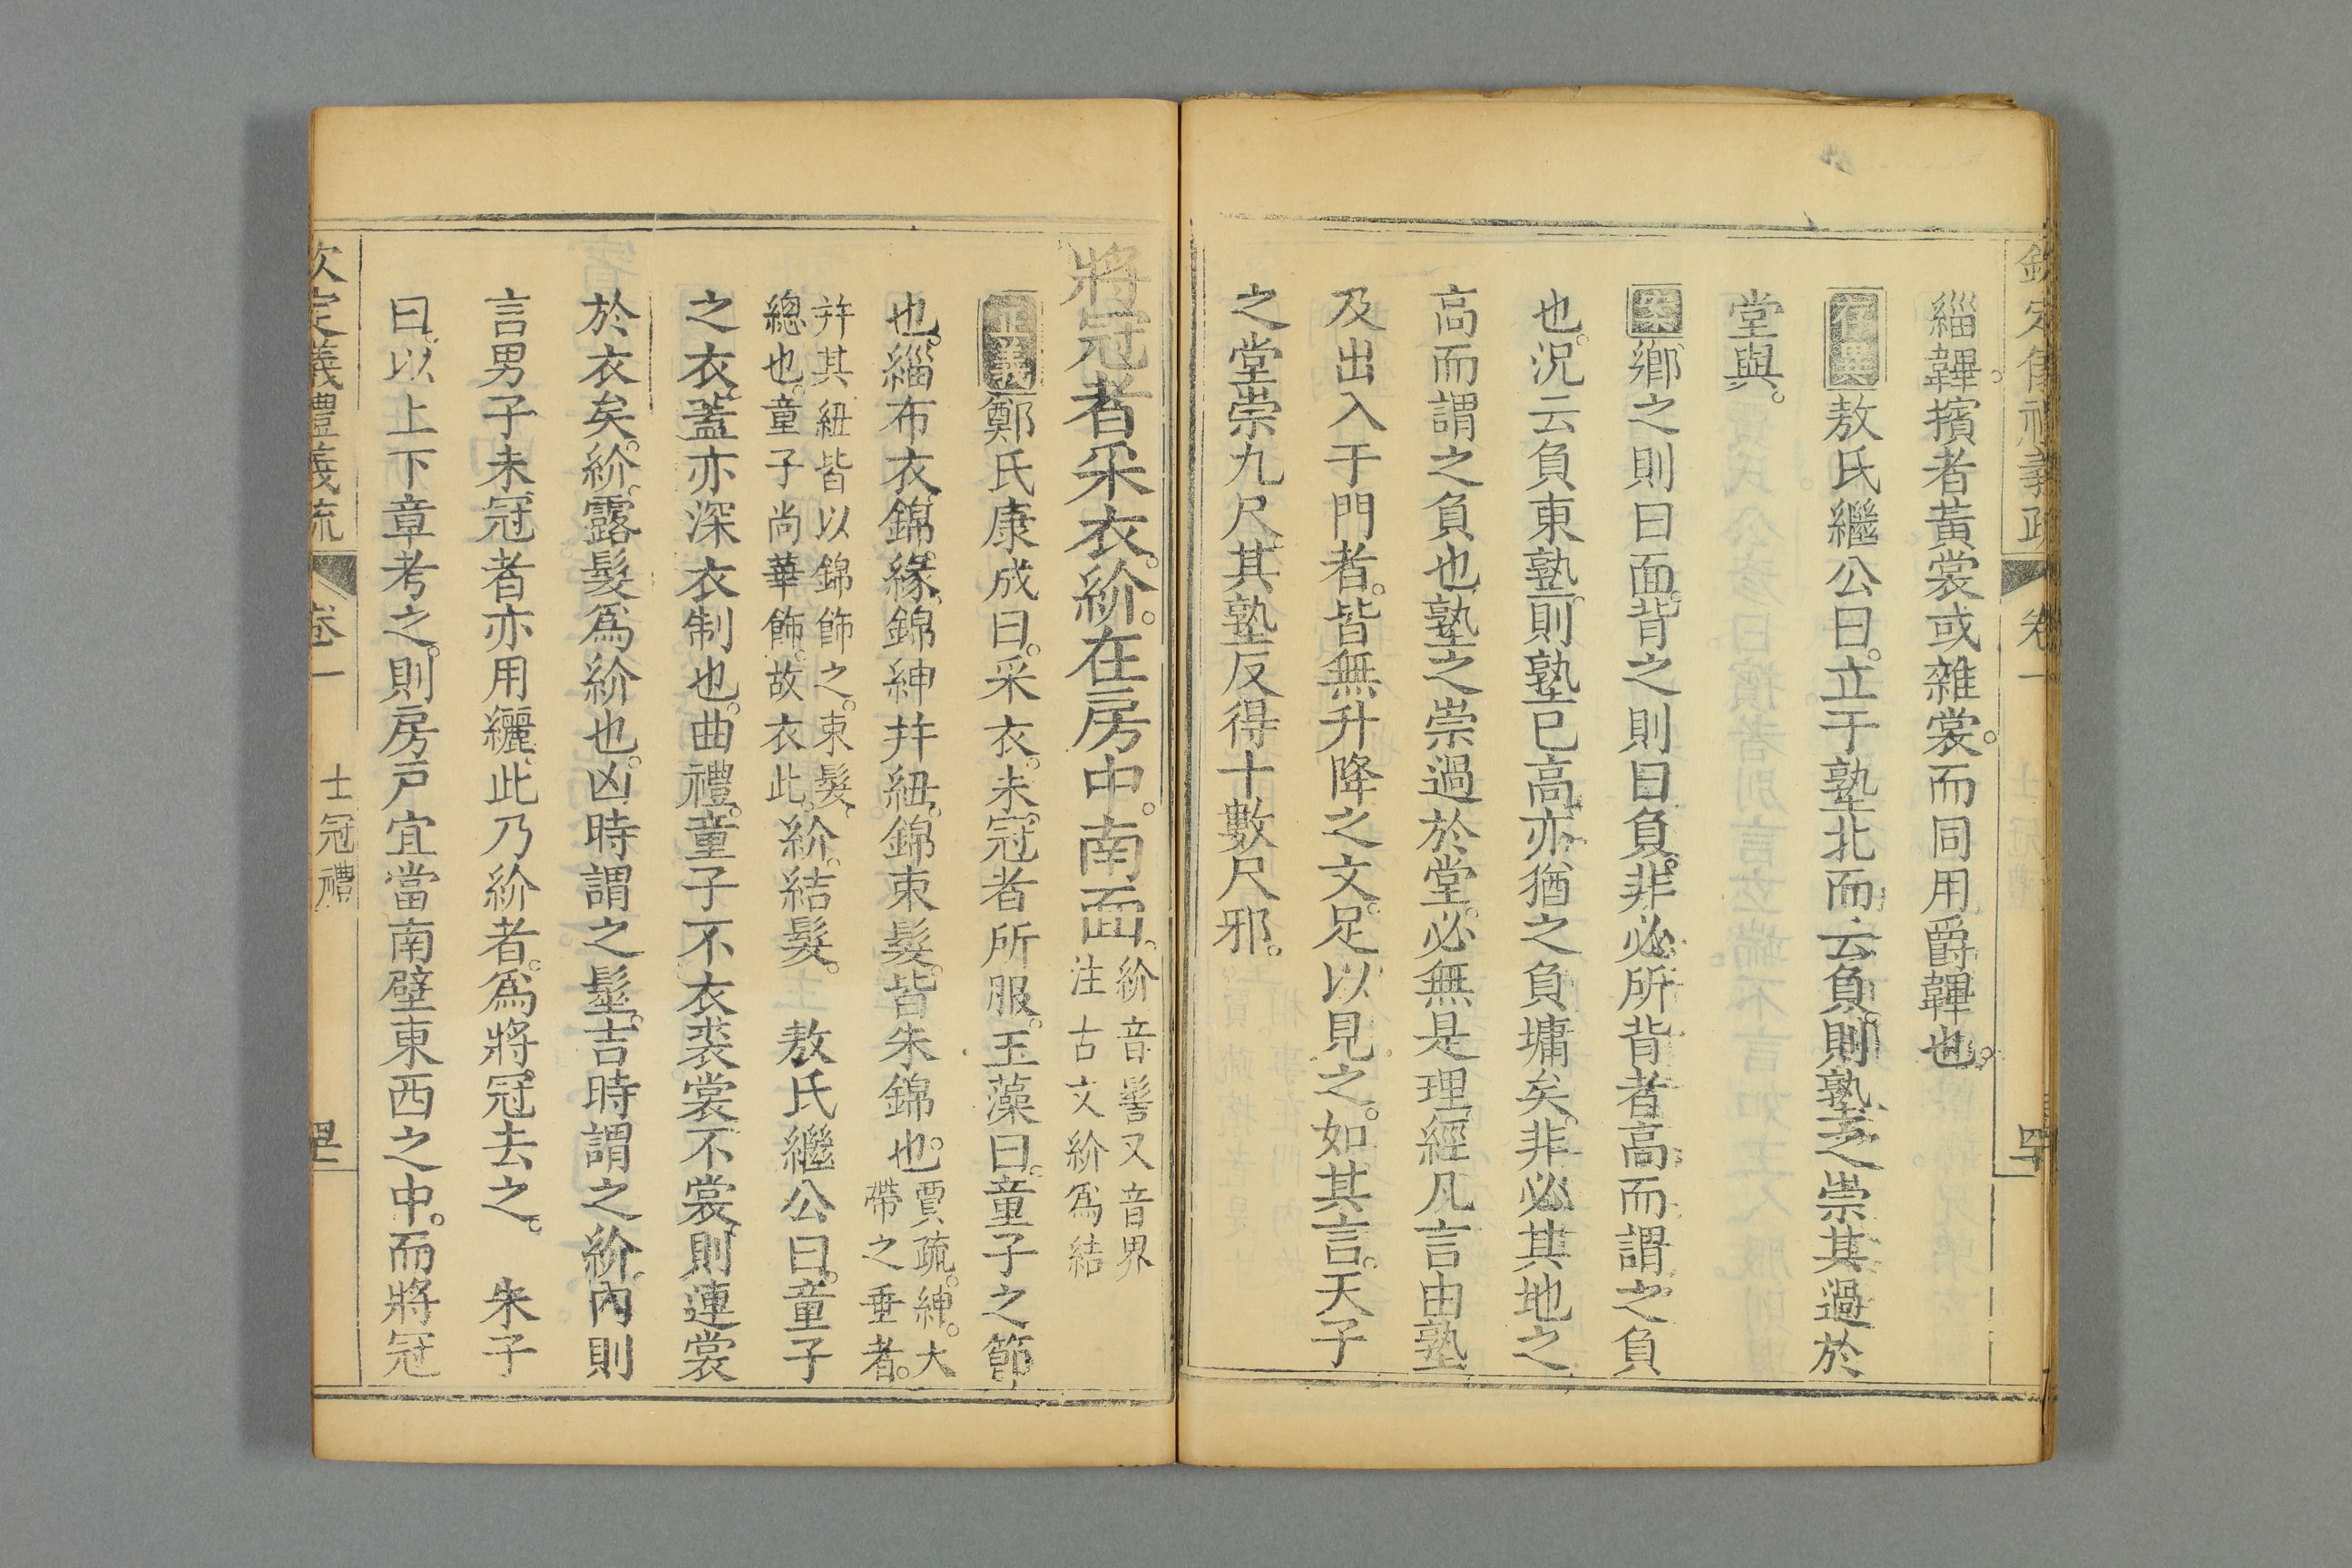 緇韠。擯者黃裳或雜裳。而同用爵韠也。
存異敖氏繼公曰。立于塾北而云負。則塾之崇其過於
堂與。
案鄉之則曰面。背之則曰負。非必所背者高而謂之負
也。況云負東塾。則塾已高。亦猶之負墉矣。非必其地之
高而謂之負也。塾之崇過於堂。必無是理。經凡言由塾
及出入于門者。皆無升降之文。足以見之。如其言。天子
之堂崇九尺。其塾反得十數尺邪。
卷一
將冠者采衣。紒。在房中。南面。紒音髻又音界
注古文紒爲結
正義鄭氏康成曰。采衣。未冠者所服。玉藻曰。童子之節
也。緇布衣。錦緣。錦紳幷紐。錦束髮。皆朱錦也。賈疏。紳。大
帶之垂者。
幷其紐皆以錦飾之。束髮、
總也。童子尚華飾。故衣此。紒。結髮。 敖氏繼公曰。童子
之衣。蓋亦深衣制也。曲禮。童子不衣裘裳。不裳。則連裳
於衣矣。紒。露髮爲紒也。凶時謂之髽。吉時謂之紒。內則
言男子未冠者亦用纚。此乃紒者。爲將冠去之。 朱子
曰。以上下章考之。則房戶宜當南壁東西之中。而將冠
欽定義禮義疏 卷一 士冠禮